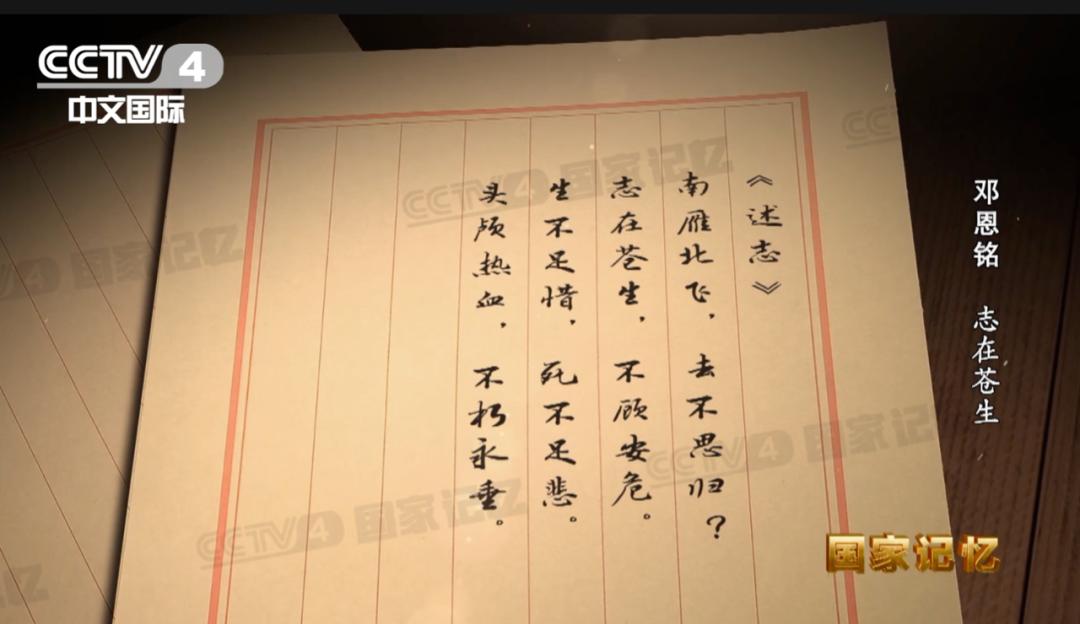 CCTV 4
中文国际
《述志》
南雁北飞，去不思归？
志在苍生，不顾安危。
生不足惜，死不足悲。
头颅热血，不朽永垂。
邓恩铭 志在苍生
国家记忆
CCTV4 国家记忆
CCTV4 国家记忆
CCTV4 国家记忆